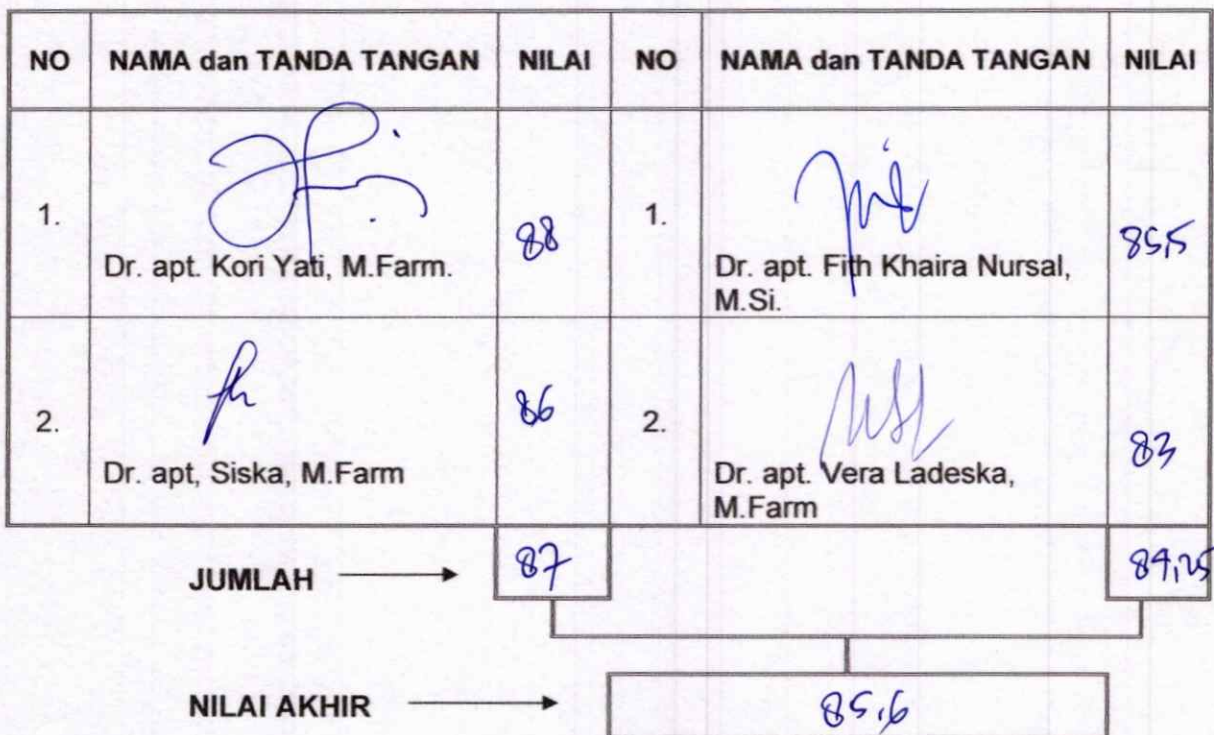 NO NAMA dan TANDA TANGAN NILAI NO NAMA dan TANDA TANGAN NILAI
1. 88 1. 85,5
Dr. apt. Kori Yati, M.Farm. Dr. apt. Fith Khaira Nursal,
M.Si.
2. 86 2. 83
Dr. apt, Siska, M.Farm Dr. apt. Vera Ladeska,
M.Farm
JUMLAH 87 84,25
NILAI AKHIR 85,6